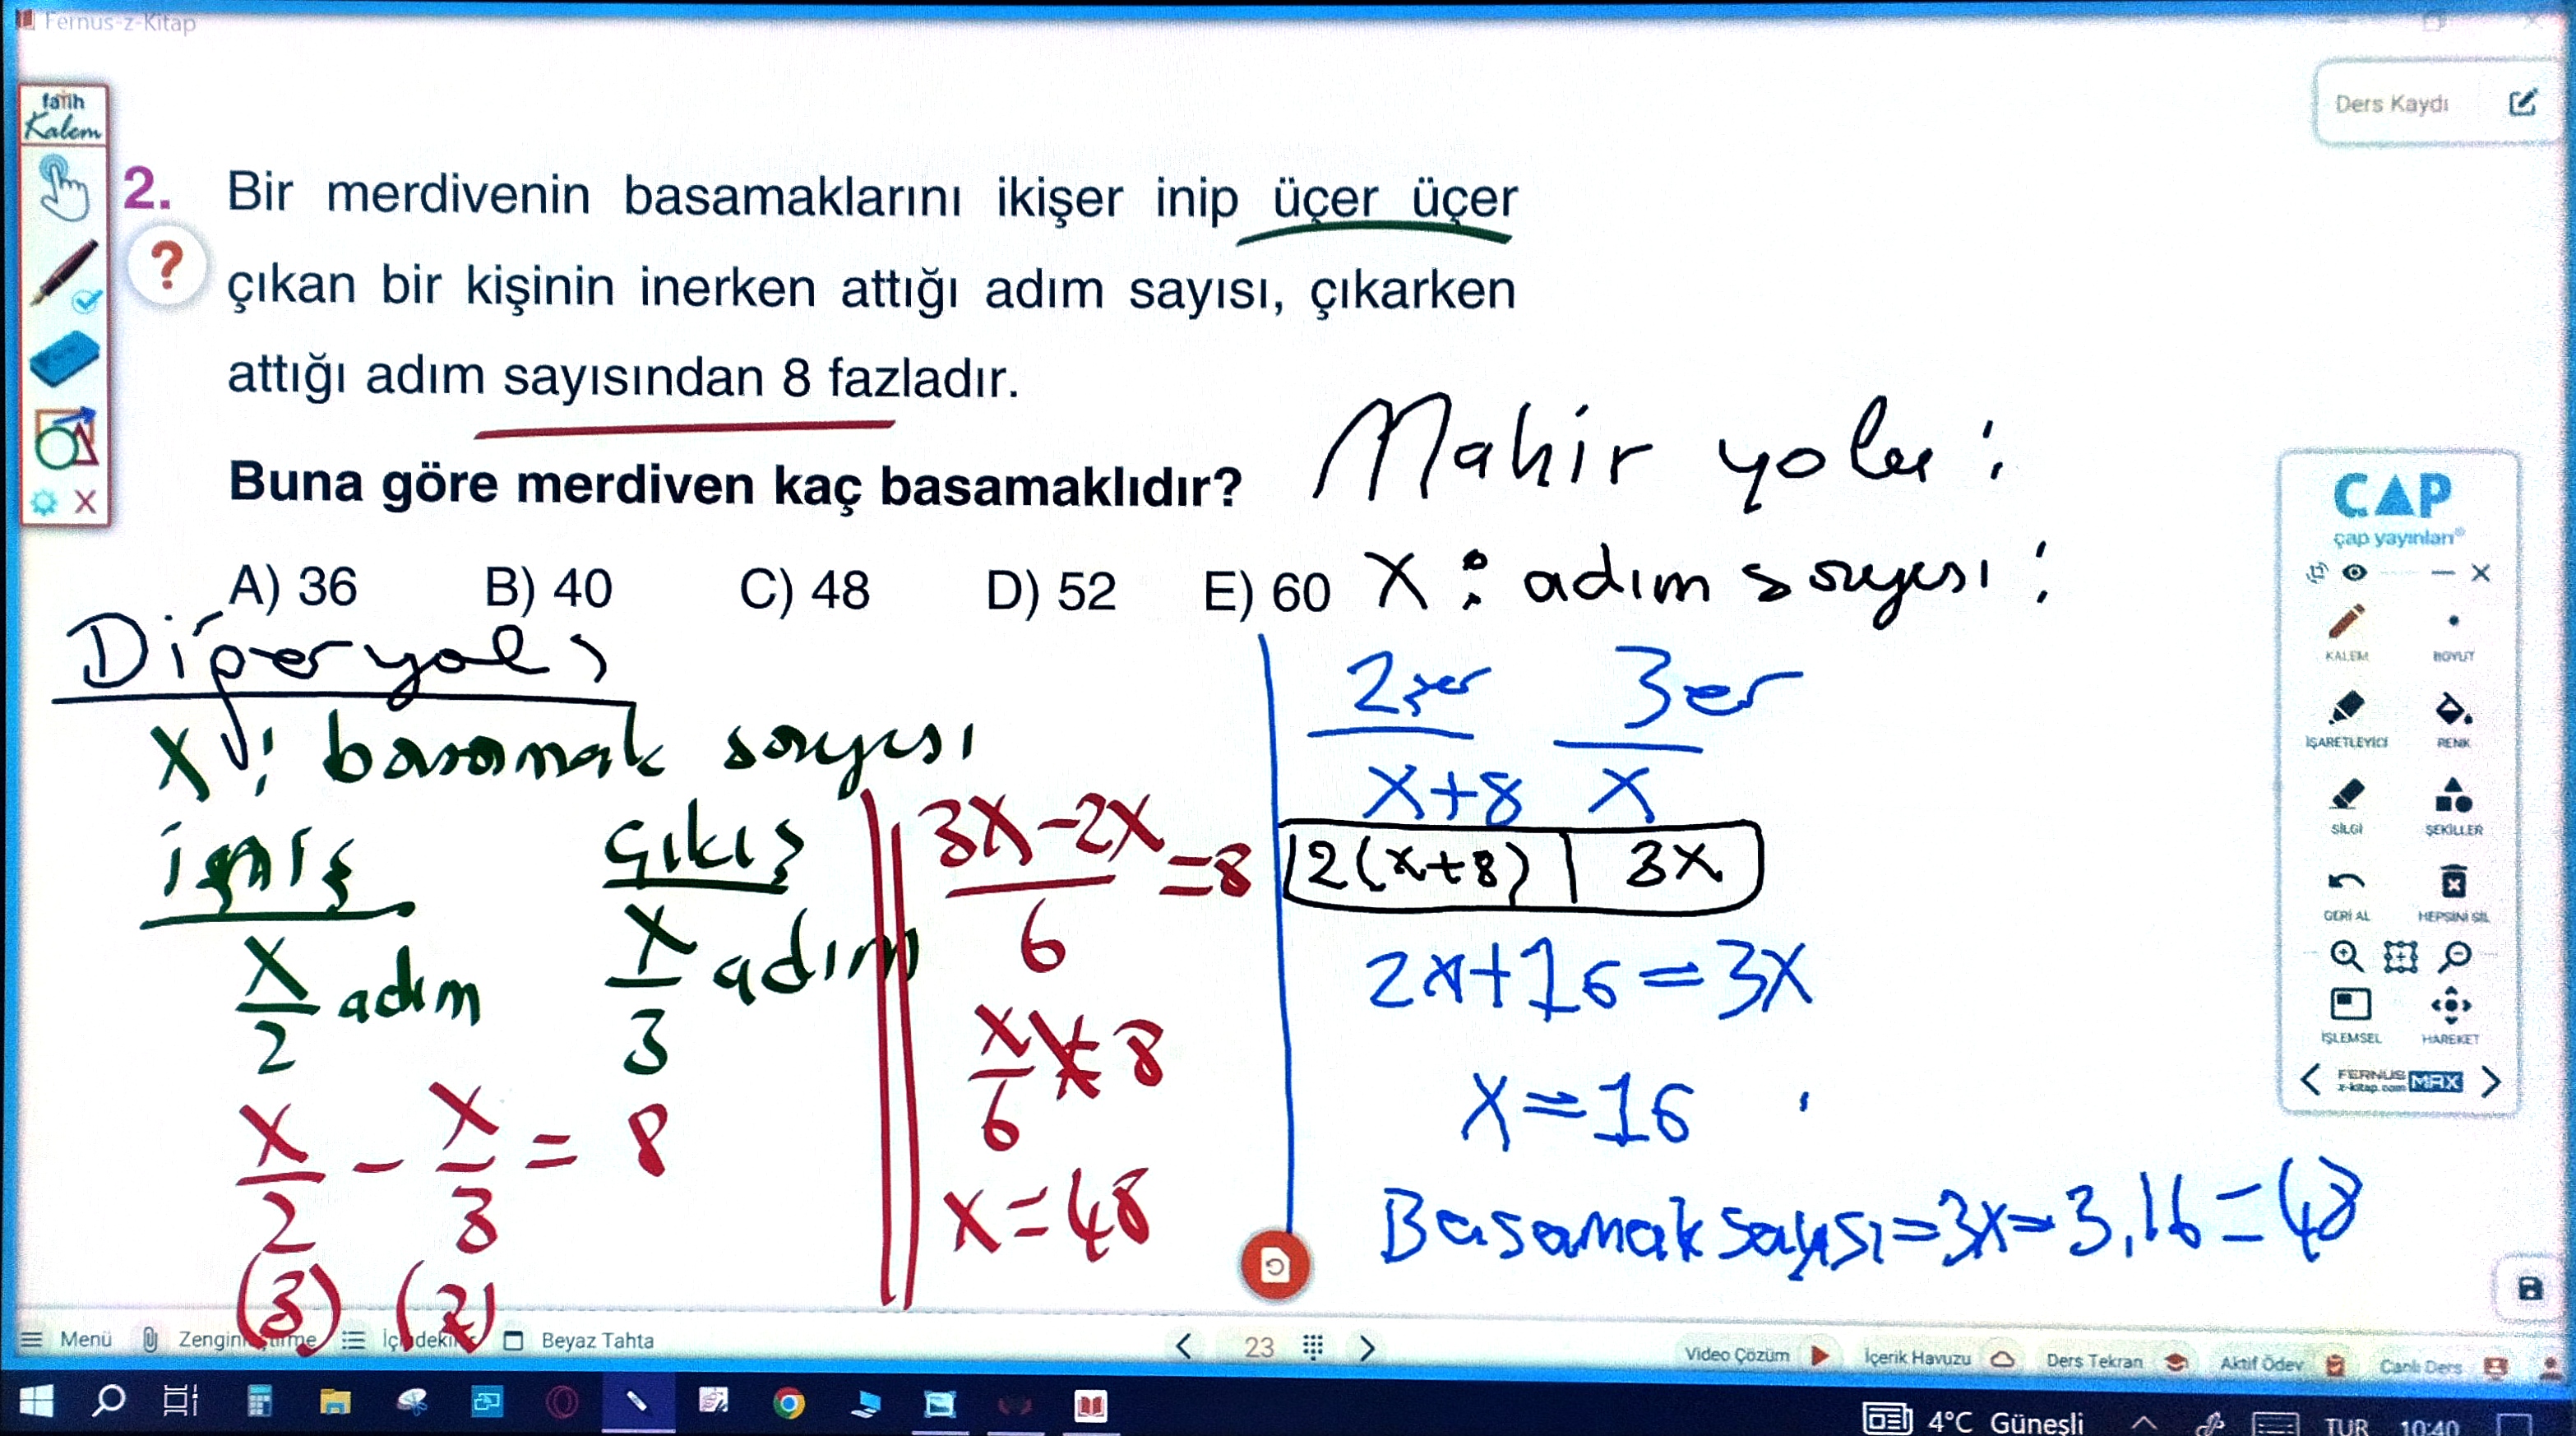 Fernus-z-Kitap
Ders Kaydı
fatih
Kalem
2. Bir merdivenin basamaklarını ikişer inip üçer üçer
?
çıkan bir kişinin inerken attığı adım sayısı, çıkarken
attığı adım sayısından 8 fazladır.
Buna göre merdiven kaç basamaklıdır?
A) 36 B) 40 C) 48 D) 52 E) 60
Mahir yolu :
x : adım sayısı :
2şer 3er
x+8 x
2(x+8) | 3x
2x+16=3x
x=16
Basamak sayısı=3x=3.16=48
Diğer yol
x : basamak sayısı
iniş çıkış
x/2 adım x/3 adım
x/2 - x/3 = 8
(3) (2)
3x-2x/6 =8
x/6 = 8
x=48
ÇAP
çap yayınları®
KALEM BOYUT
İŞARETLEYİCİ RENK
SİLGİ ŞEKİLLER
GERİ AL HEPSİNİ SİL
İŞLEMSEL HAREKET
FERNUS MAX
z-kitap.com
Menü Beyaz Tahta 23 Video Çözüm İçerik Havuzu Ders Tekran Aktif Ödev Canlı Ders
4°C Güneşli TUR 10:40